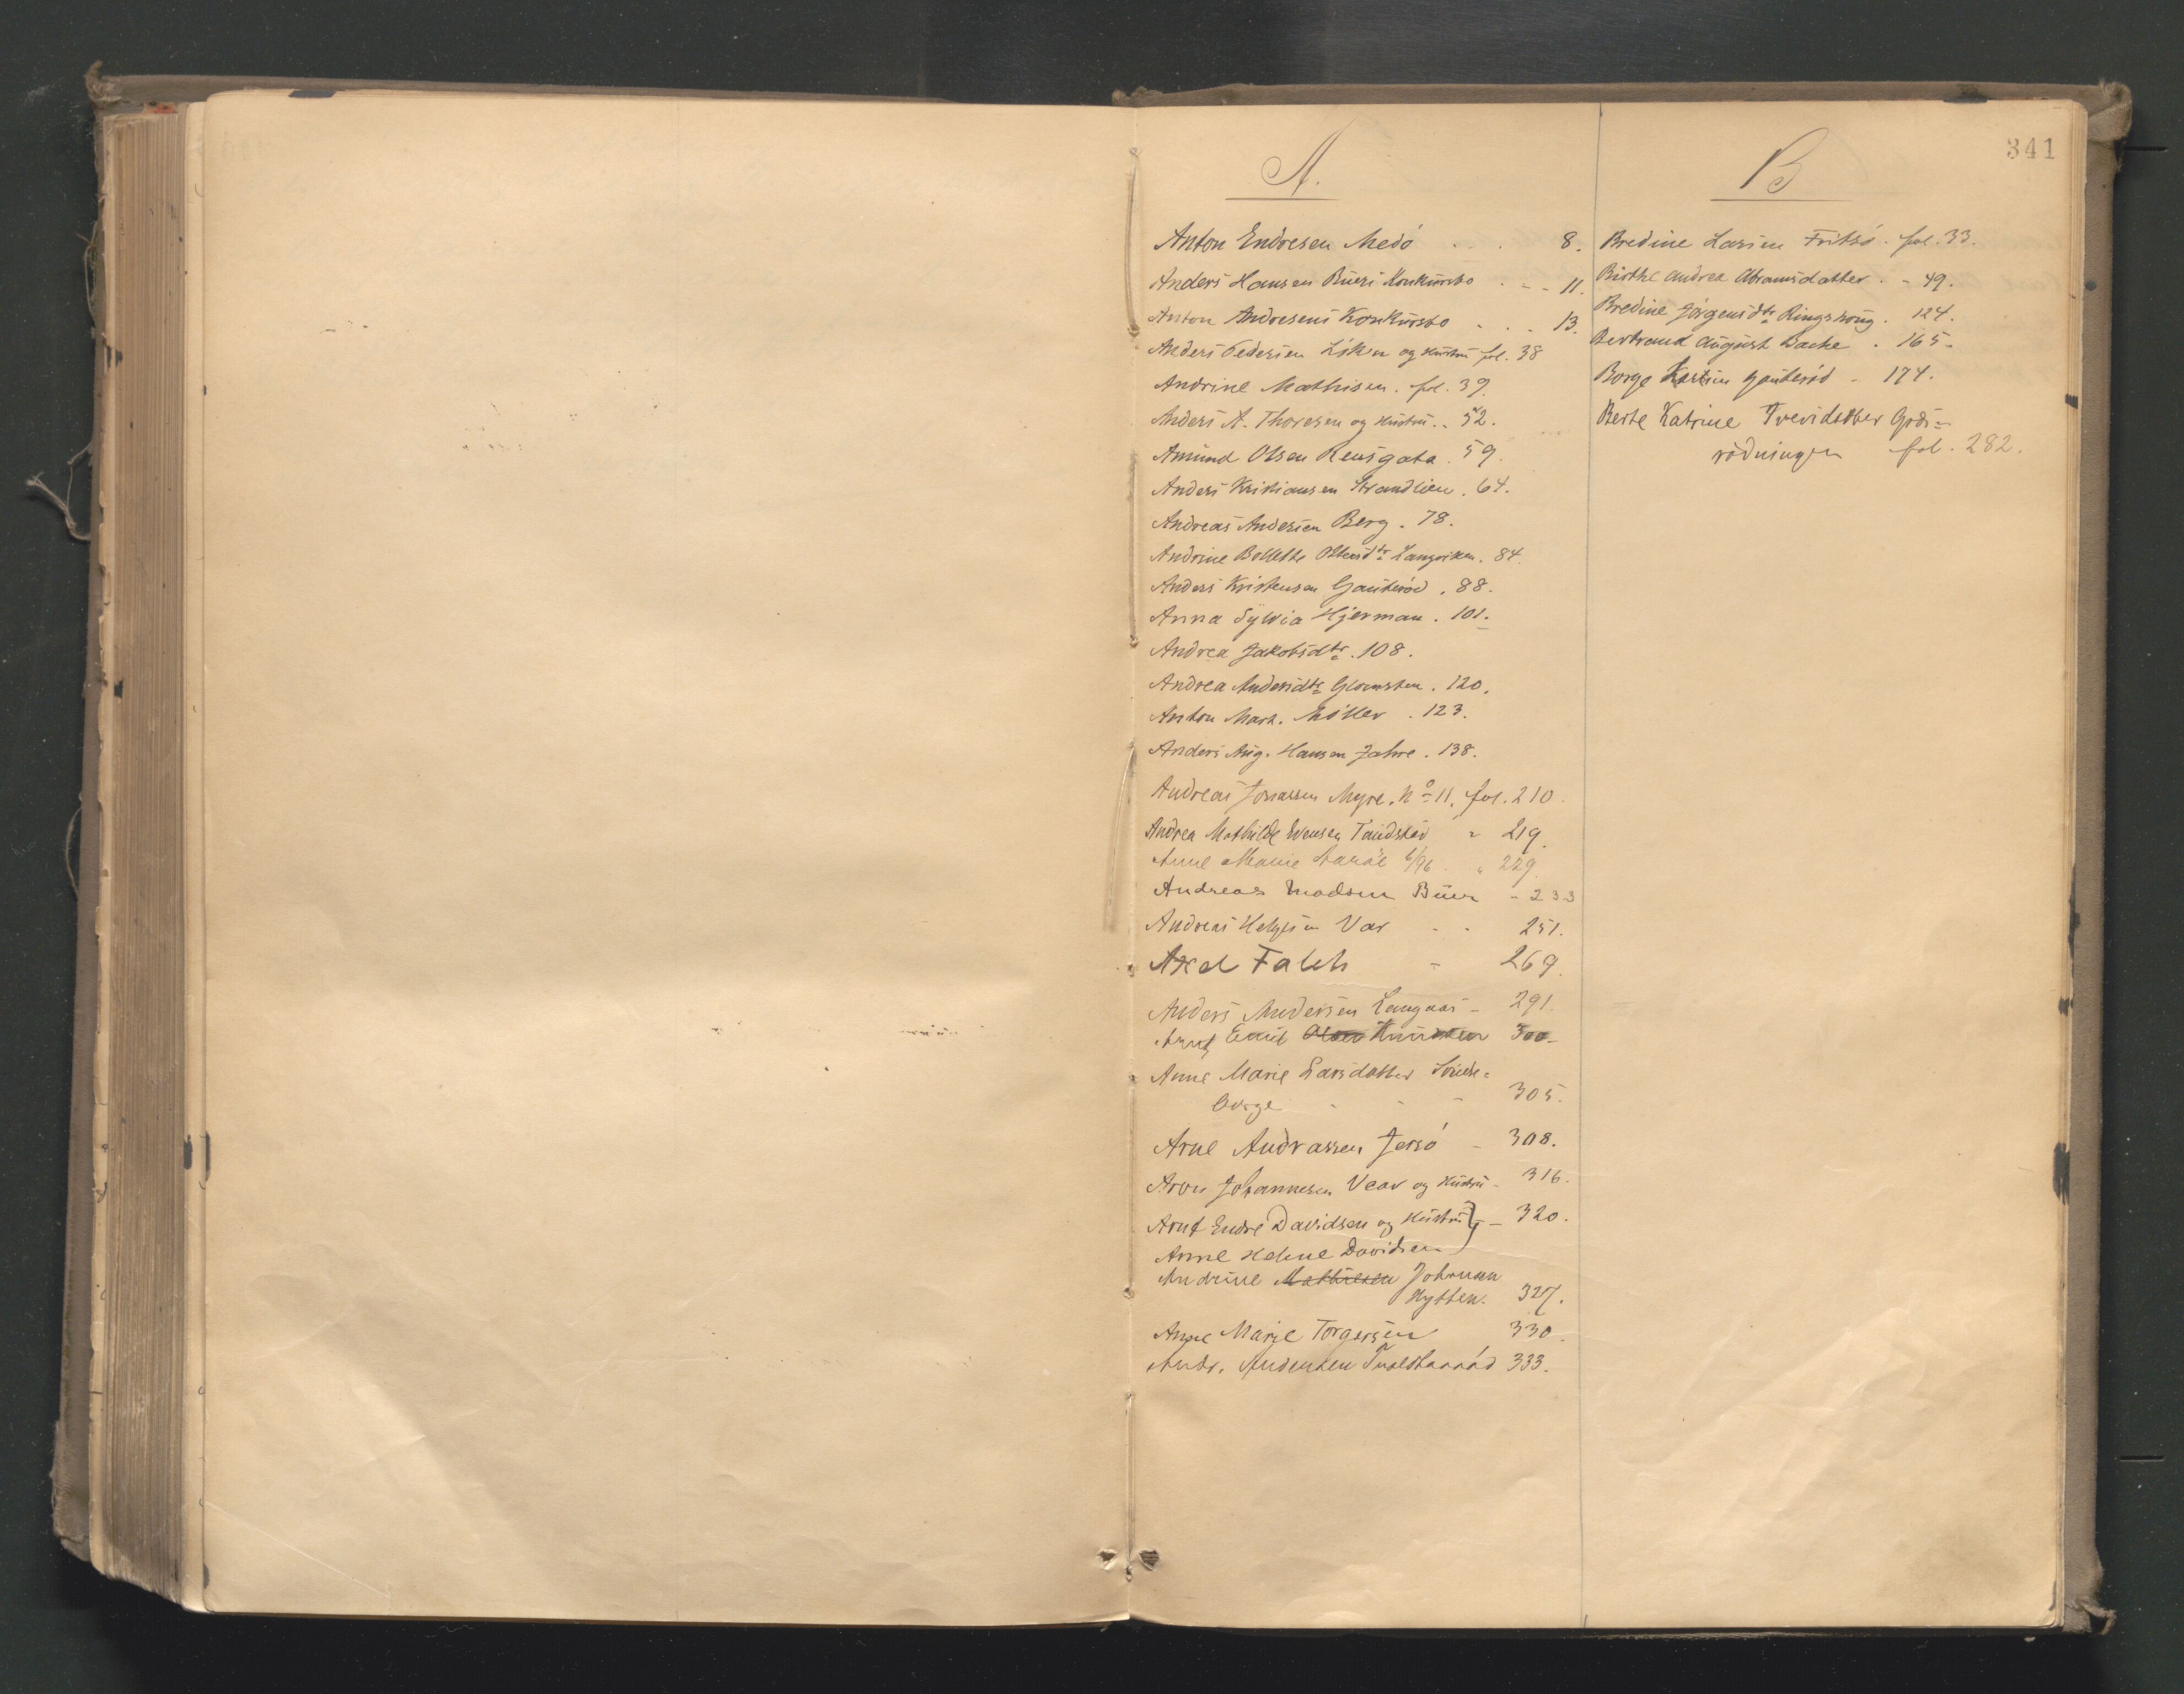 341
A.
Anton Endresen Medö . . . 8.
Anders Hansen Bueri Konkursbo . - - 11.
Anton Andresens Konkursbo . . . 13.
Anders Pedersen Löken og Hustru fol. 38
Andrine Mathisen . fol. 39.
Anders A. Thoresen og Hustru . . 52.
Amund Olsen Rensgata . 59.
Anders Kristiansen Strandlien . 64.
Andreas Andersen Berg . 78.
Andrine Bollette Ottersdtr Langviken . 84.
Anders Kristensen Gauteröd . 88.
Anna Sylvia Hjerman . 101.
Andrea Jakobsdtr . 108.
Andrea Andersdtr Glomsten . 120.
Anton Mart. Möller . 123.
Anders Aug. Hansen Jahre . 138.
Andreas Jonassen Myre. No 11. fol. 210.
Andrea Mathilde Evensen - 219.
Anne Marie 6/96 . " 229.
Andreas Madsen Buer - 233
Andreas Helgesen Vear - - 251.
Axel Falch - 269.
Anders Andersen Langaas - 291.
Arnt Emil Olsen Knudsen 300.
Anne Marie Larsdatter
borge - - - 305.
Arne Andreassen Jersö - 308.
Aron Johannesen Vear og Hustru - 316.
Arnt Endre Davidsen og Hustru } - 320.
Anne Helene Davidsen
Andrine Mathisen Johnsen
Hytten. 327.
Anne Marie Torgersen 330.
Andr. Andersen 333.
B
Bredine Larsen Fritsö . fol. 33.
Birthe Andrea Abramsdatter . - 49.
Bredine Jörgensdtr Ringshoug . 124.
Bertrand August Bache . 165.
Borge Gauteröd - 174.
Berte Katrine
rödningen fol. 282.